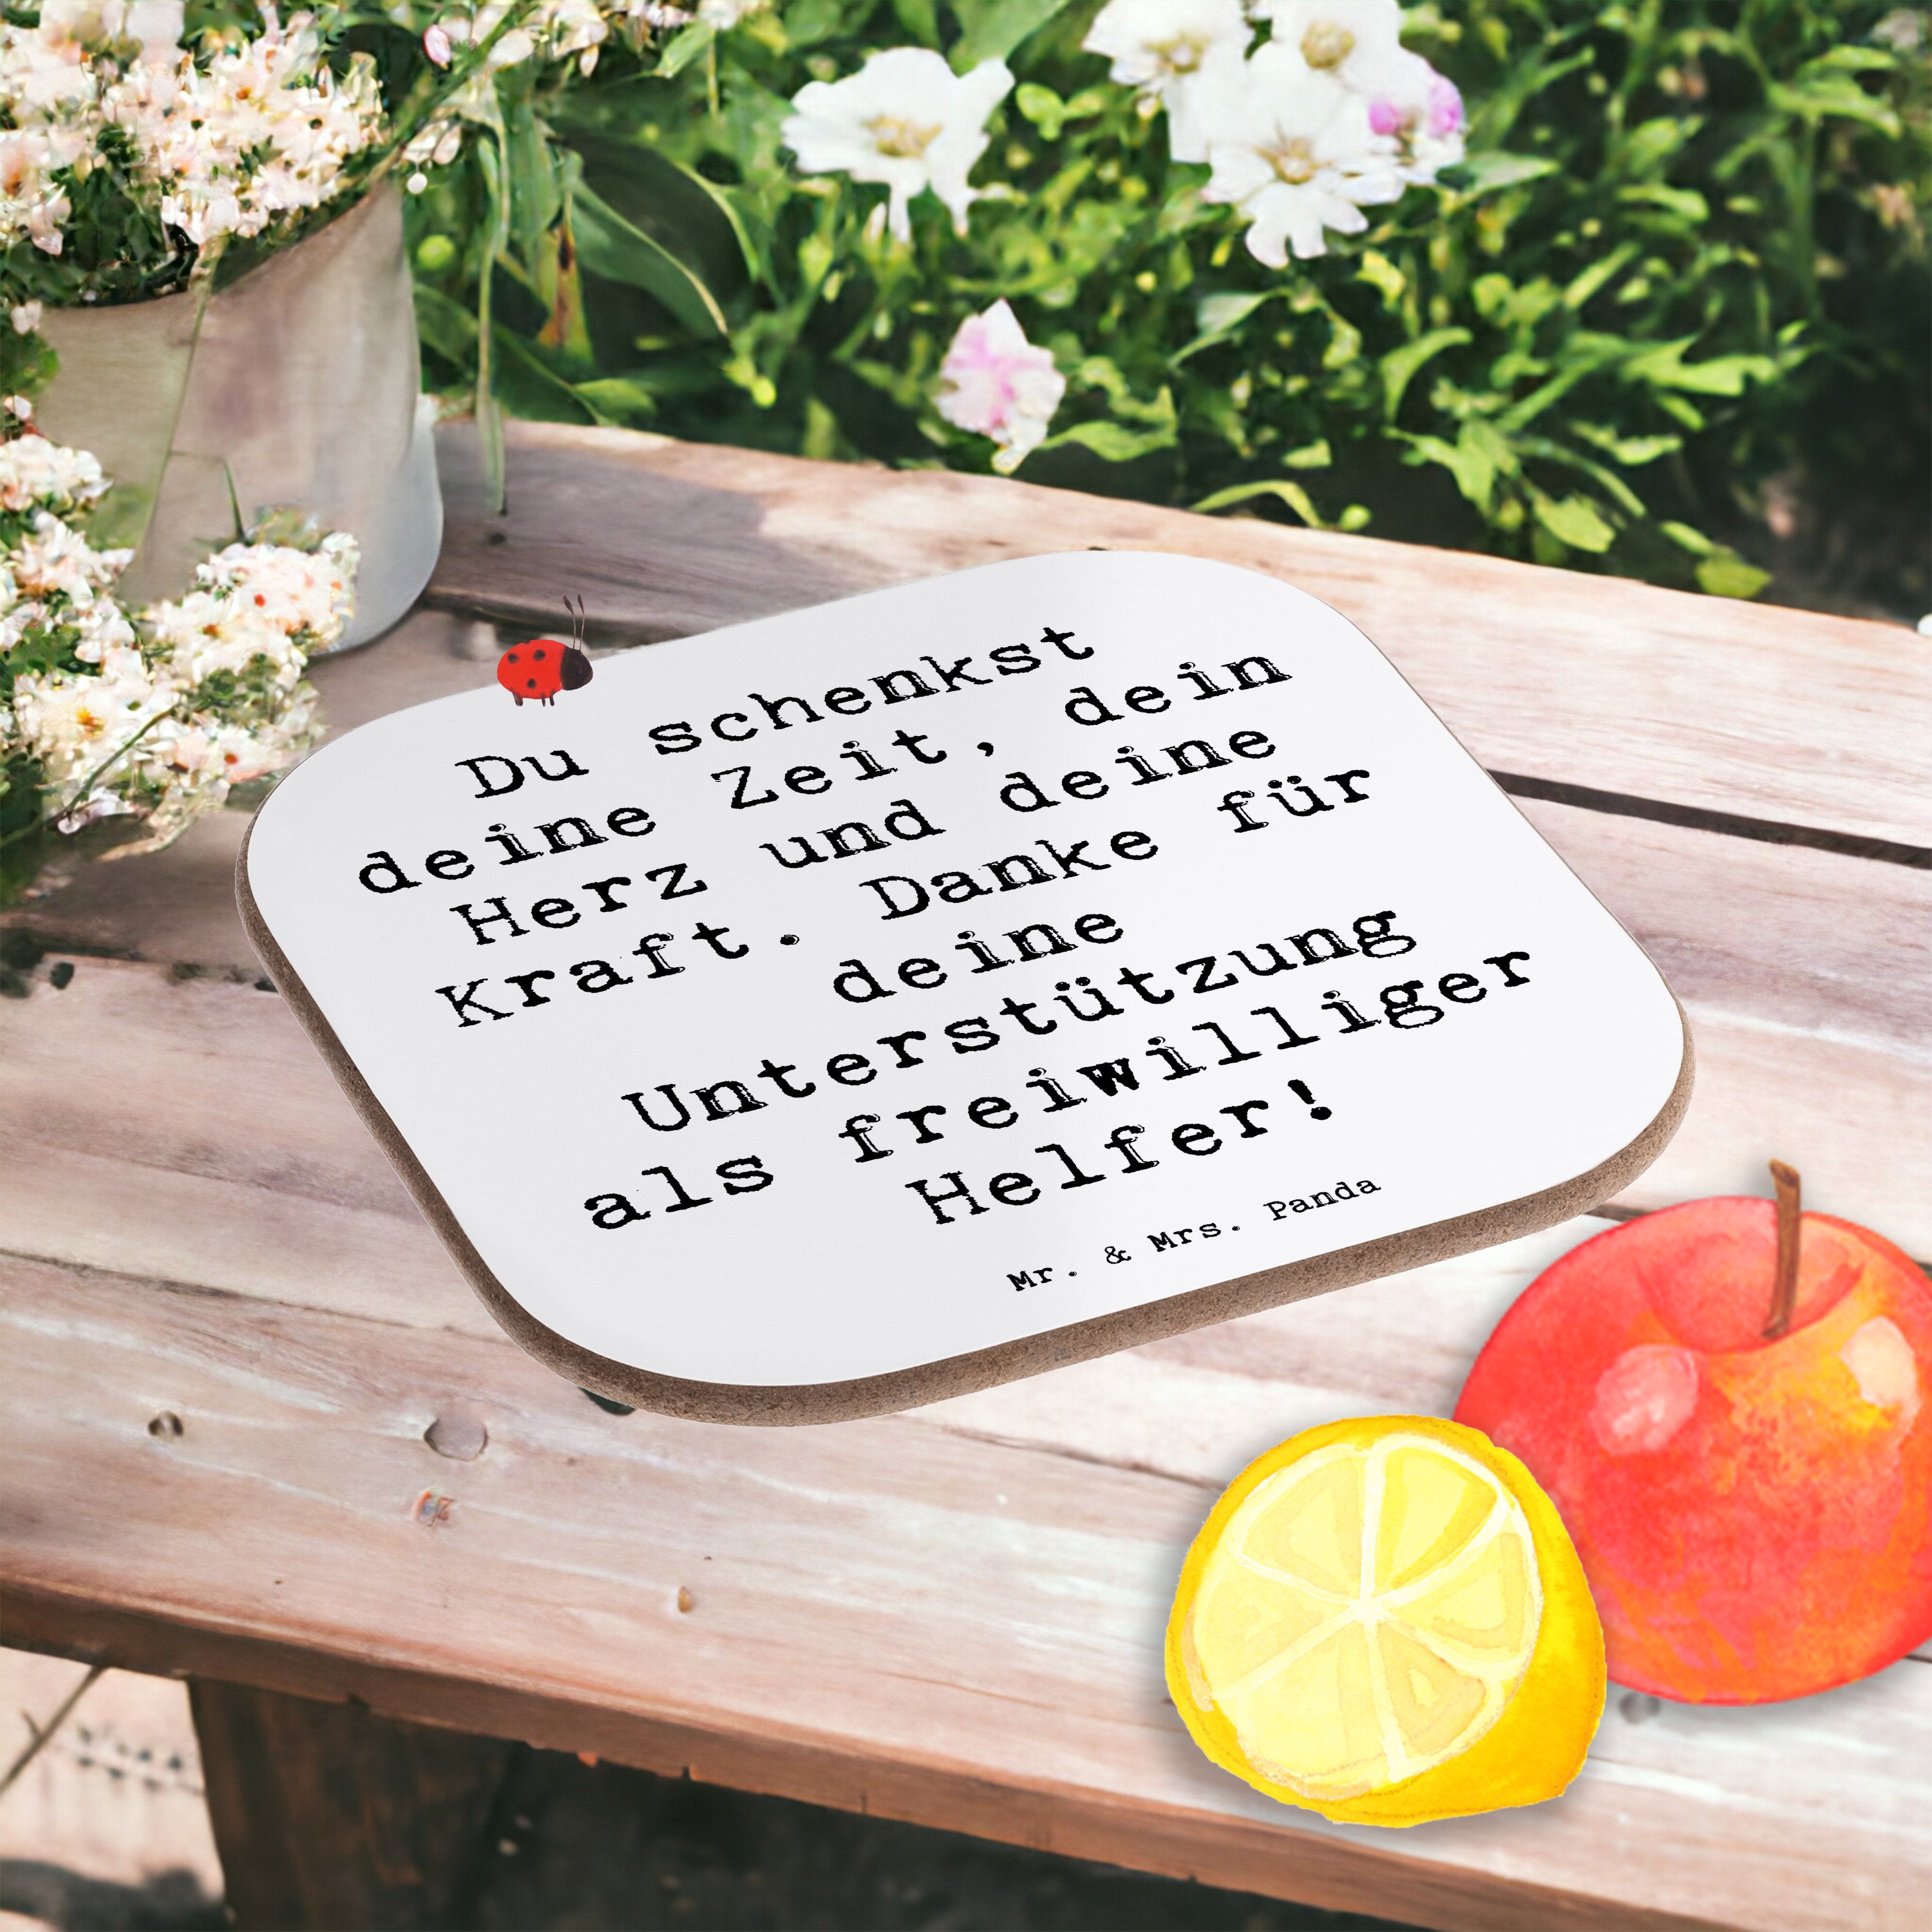 Du schenkst
deine Zeit, dein
Herz und deine
Kraft. Danke für
deine
Unterstützung
als freiwilliger
Helfer!
Mr. & Mrs. Panda